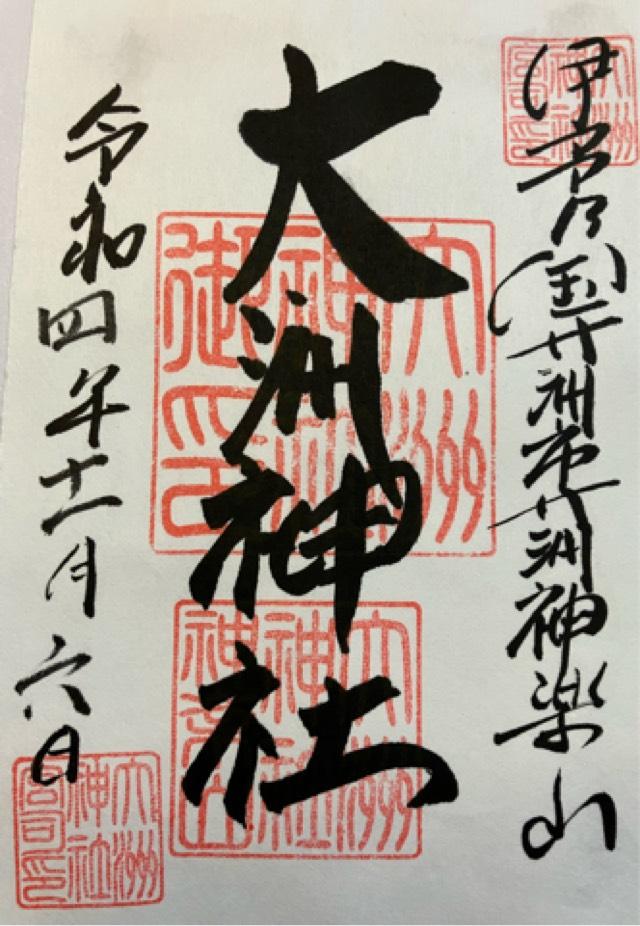 伊豫国大洲市大洲神楽山
大洲神社
令和四年十一月六日
大洲神社宮司印
大洲神社御印
大洲神社宮司印